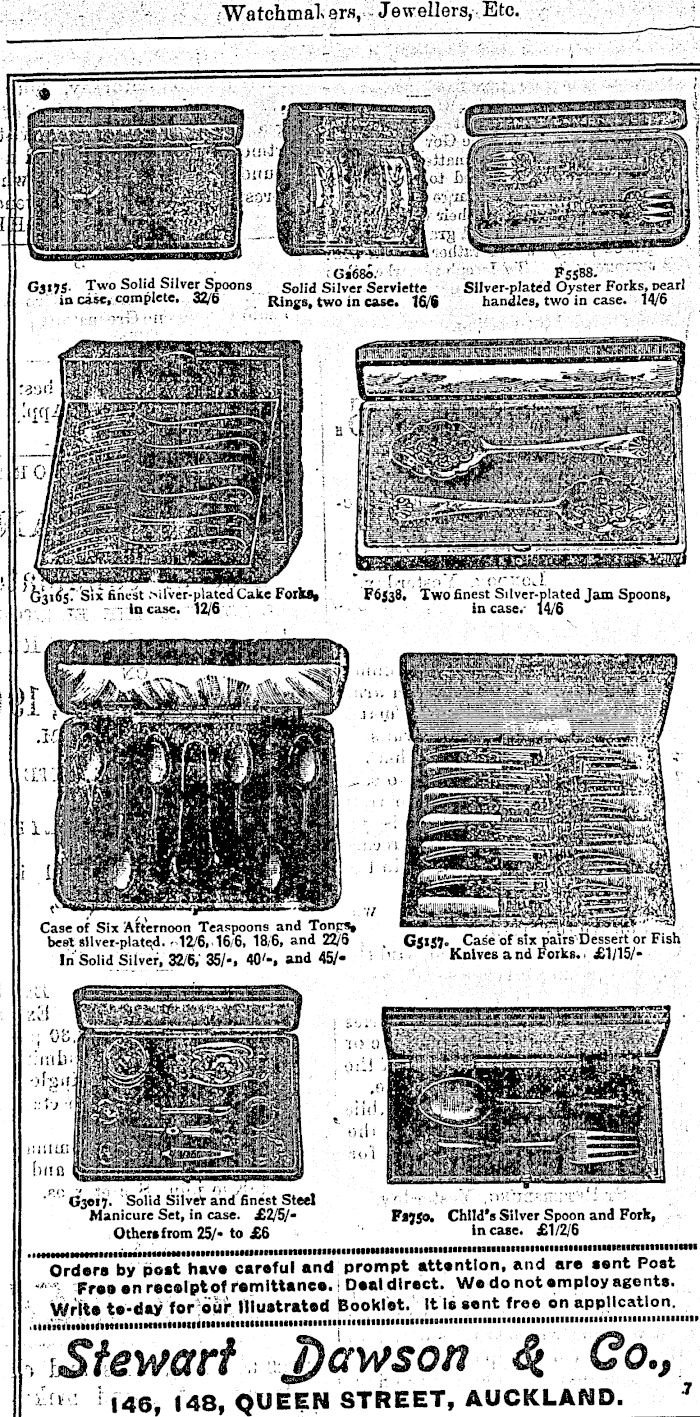 Watchmakers, Jewellers, Etc.
G3175. Two Solid Silver Spoons
in case, complete. 32/6
G2680.
Solid Silver Serviette
Rings, two in case. 16/6
F5588.
Silver-plated Oyster Forks, pearl
handles, two in case. 14/6
G3165. Six finest Silver-plated Cake Forks,
in case. 12/6
F6538. Two finest Silver-plated Jam Spoons,
in case. 14/6
Case of Six Afternoon Teaspoons and Tongs,
best silver-plated. 12/6, 16/6, 18/6, and 22/6
In Solid Silver, 32/6, 35/-, 40/-, and 45/-
G5157. Case of six pairs Dessert or Fish
Knives and Forks. £1/15/-
G3017. Solid Silver and finest Steel
Manicure Set, in case. £2/5/-
Others from 25/- to £6
F2750. Child's Silver Spoon and Fork,
in case. £1/2/6
Orders by post have careful and prompt attention, and are sent Post
Free on receipt of remittance. Deal direct. We do not employ agents.
Write to-day for our Illustrated Booklet. It is sent free on application.
Stewart Dawson & Co.,
146, 148, QUEEN STREET, AUCKLAND.
7